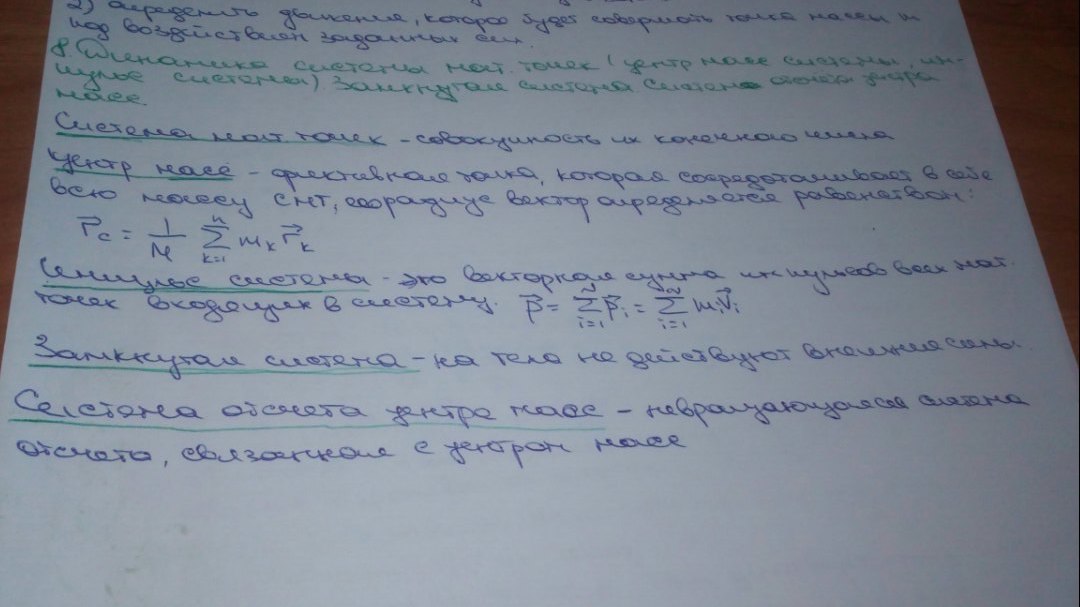 2) определить движения, которое будет совершать точка массы m
под воздействием заданных сил.
8. Динамика системы мат. точек (центр масс системы, им-
пульс системы). Замкнутая система Система отсчета центра
масс.
Система мат точек - совокупность их конечного числа
Центр масс - фиктивная точка, которая сосредотачивает в себе
всю массу СМТ, радиус вектор определяется равенством:
r⃗c = 1/M ∑ₖ₌₁ⁿ mₖ r⃗ₖ
Импульс системы - это векторная сумма импульсов всех мат.
точек входящих в систему. p⃗ = ∑ᵢ₌₁ᴺ p⃗ᵢ = ∑ᵢ₌₁ᴺ mᵢv⃗ᵢ
Замкнутая система - на тело не действуют внешние силы.
Система отсчета центра масс - невращающаяся система
отсчета, связанная с центром масс